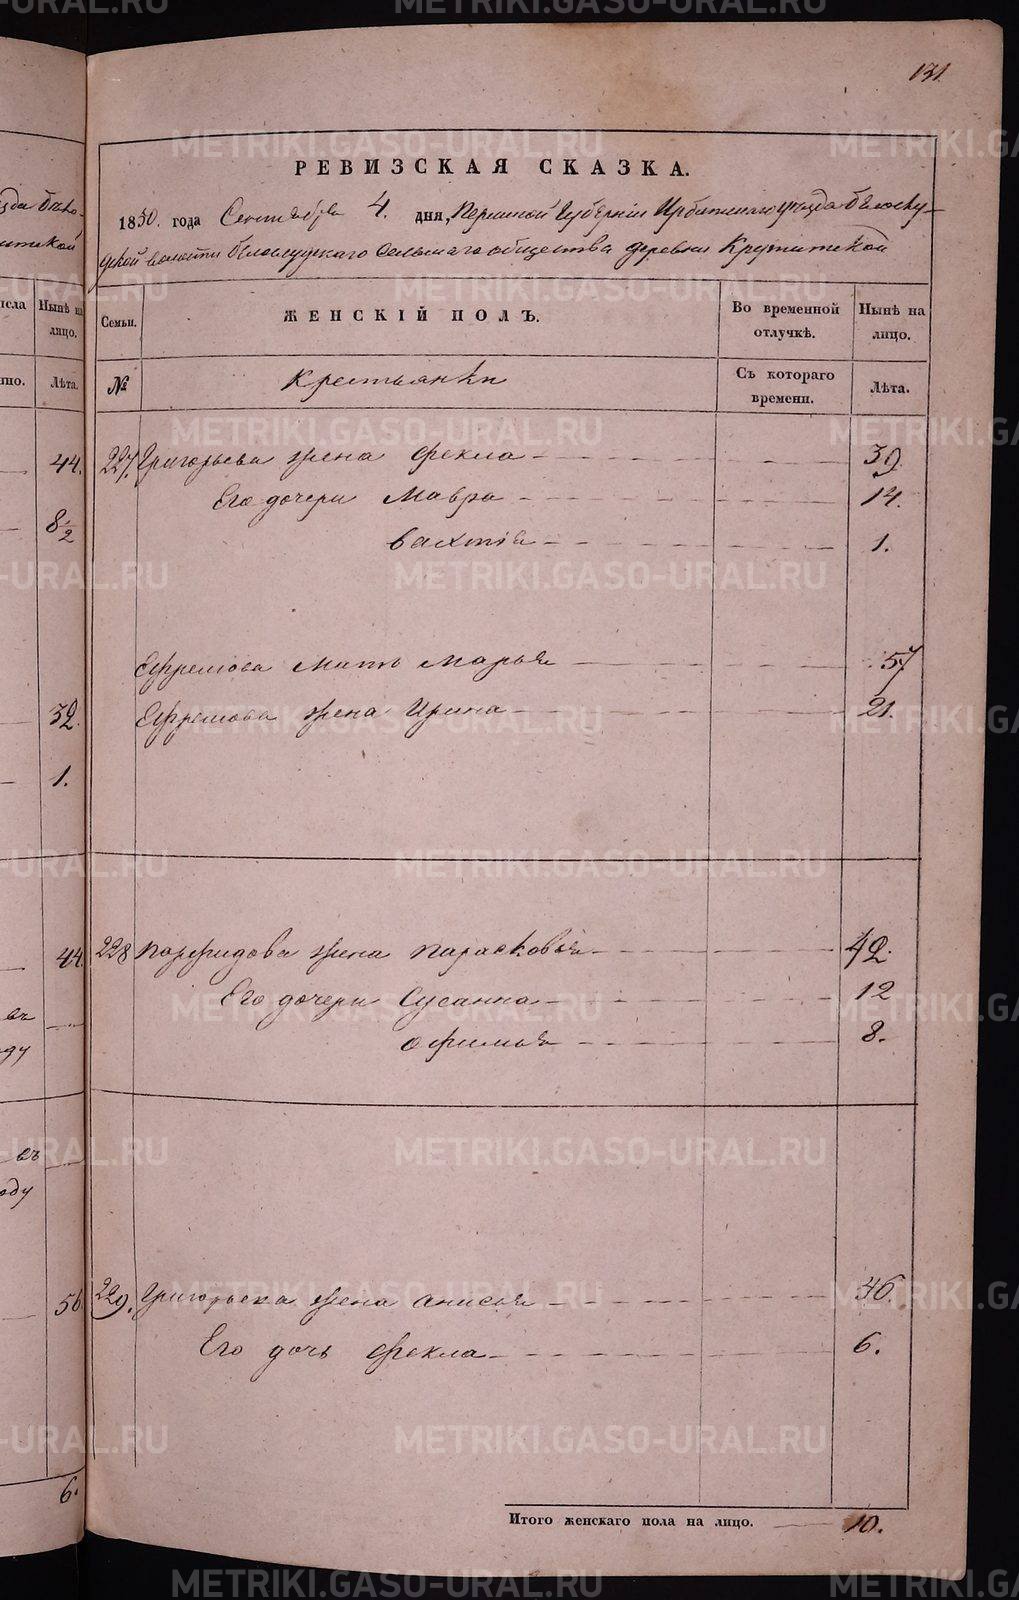 131.
РЕВИЗСКАЯ СКАЗКА.
1850. года Сентября 4. дня, Пермской Губерніи Ирбитскаго уезда Белослу-
дской волости Белослудскаго Сельскаго общества деревни
Семьи.
ЖЕНСКІЙ ПОЛЪ.
Во временной отлучкѣ.
Нынѣ на лицо.
№
Крестьянки
Съ котораго времени.
Лѣта.
227. Григорьева жена Фекла 39.
Его дочери Мавра 14.
1.
Ефремова мать Марья 57
Ефремова жена Ирина 21.
228 жена Парасковья 42.
Его дочери Сусанна 12
Офимья 8.
229. Григорьева жена Анисья 46.
Его дочь Фекла 6.
Итого женскаго пола на лицо. 10.
Нынѣ на лицо.
Лѣта.
44.
8½
32.
1.
44.
56
6.
METRIKI.GASO-URAL.RU